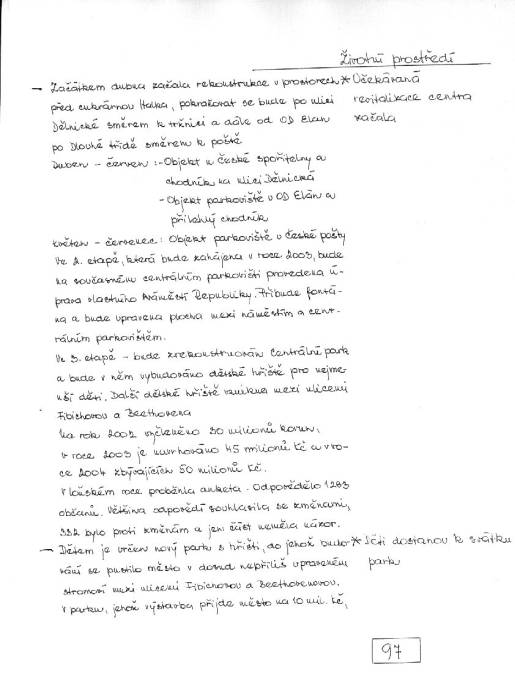 Životní prostředí
– Začátkem dubna začala rekonstrukce v prostorech * Očekávaná
před cukrárnou Halka, pokračovat se bude po ulici revitalizace centra
Dělnické směrem k tržnici a dále od OD Elan začala
po Dlouhé třídě směrem k poště
Duben – červen: - Objekt u České spořitelny a
chodník na ulici Dělnická
- Objekt parkoviště u OD Elán a
přilehlý chodník
Květen – červenec: Objekt parkoviště u České pošty
Ve 2. etapě, která bude zahájena v roce 2003, bude
na současném centrálním parkovišti provedena ú-
prava vlastního náměstí Republiky. Přibude fontá-
na a bude upravena plocha mezi náměstím a cent-
rálním parkovištěm.
Ve 3. etapě – bude zrekonstruován centrální park
a bude v něm vybudováno dětské hřiště pro nejme-
nší děti. Další dětské hřiště vznikne mezi ulicemi
Fibichovou a Beethovena
Na rok 2002 vyčleněno 30 milionů korun,
v roce 2003 je navrhováno 45 milionů Kč a v ro-
ce 2004 zbývajících 50 milionů Kč.
V loňském roce proběhla anketa. Odpovědělo 1283
občanů. Většina odpovědí souhlasila se změnami,
332 bylo proti změnám a jen část neměla názor.
– Dětem je určen nový park s hřišti, do jehož budo- * Děti dostanou k svátku
vání se pustilo město v dosud nepříliš upraveném park
stromoví mezi ulicemi Fibichovou a Beethovenovou.
V parku, jehož výstavba přijde město na 10 mil. Kč,
97